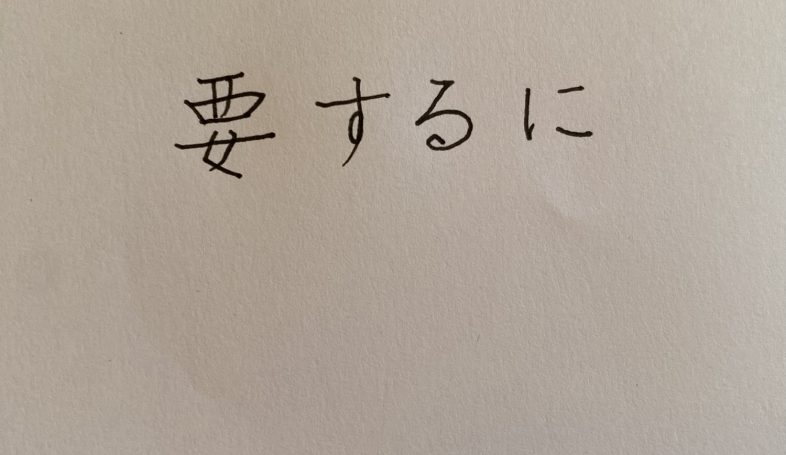 要するに